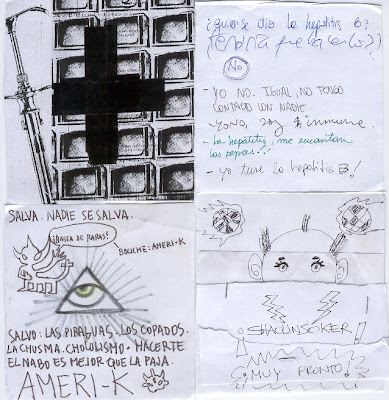 ¿quiense dio la hepatitis B?
No
- YO NO. IGUAL, NO TENGO
CONTACTO CON NADIE
- Yo no, soy inmune
- La hepatitis, me encantan
las pepas...
- yo tuve la hepatitis B!
SALVA. NADIE SE SALVA.
¡BASTA DE RAPAS!
BOLICHE: AMERI-K
SALVO: LAS PIRAGUAS. LOS COPADOS.
LA CHUSMA. CHOLULISMO. HACERTE
EL NABO ES MEJOR QUE LA PAJA.
AMERI-K
SHAOLINSOKER!
¡MUY PRONTO!